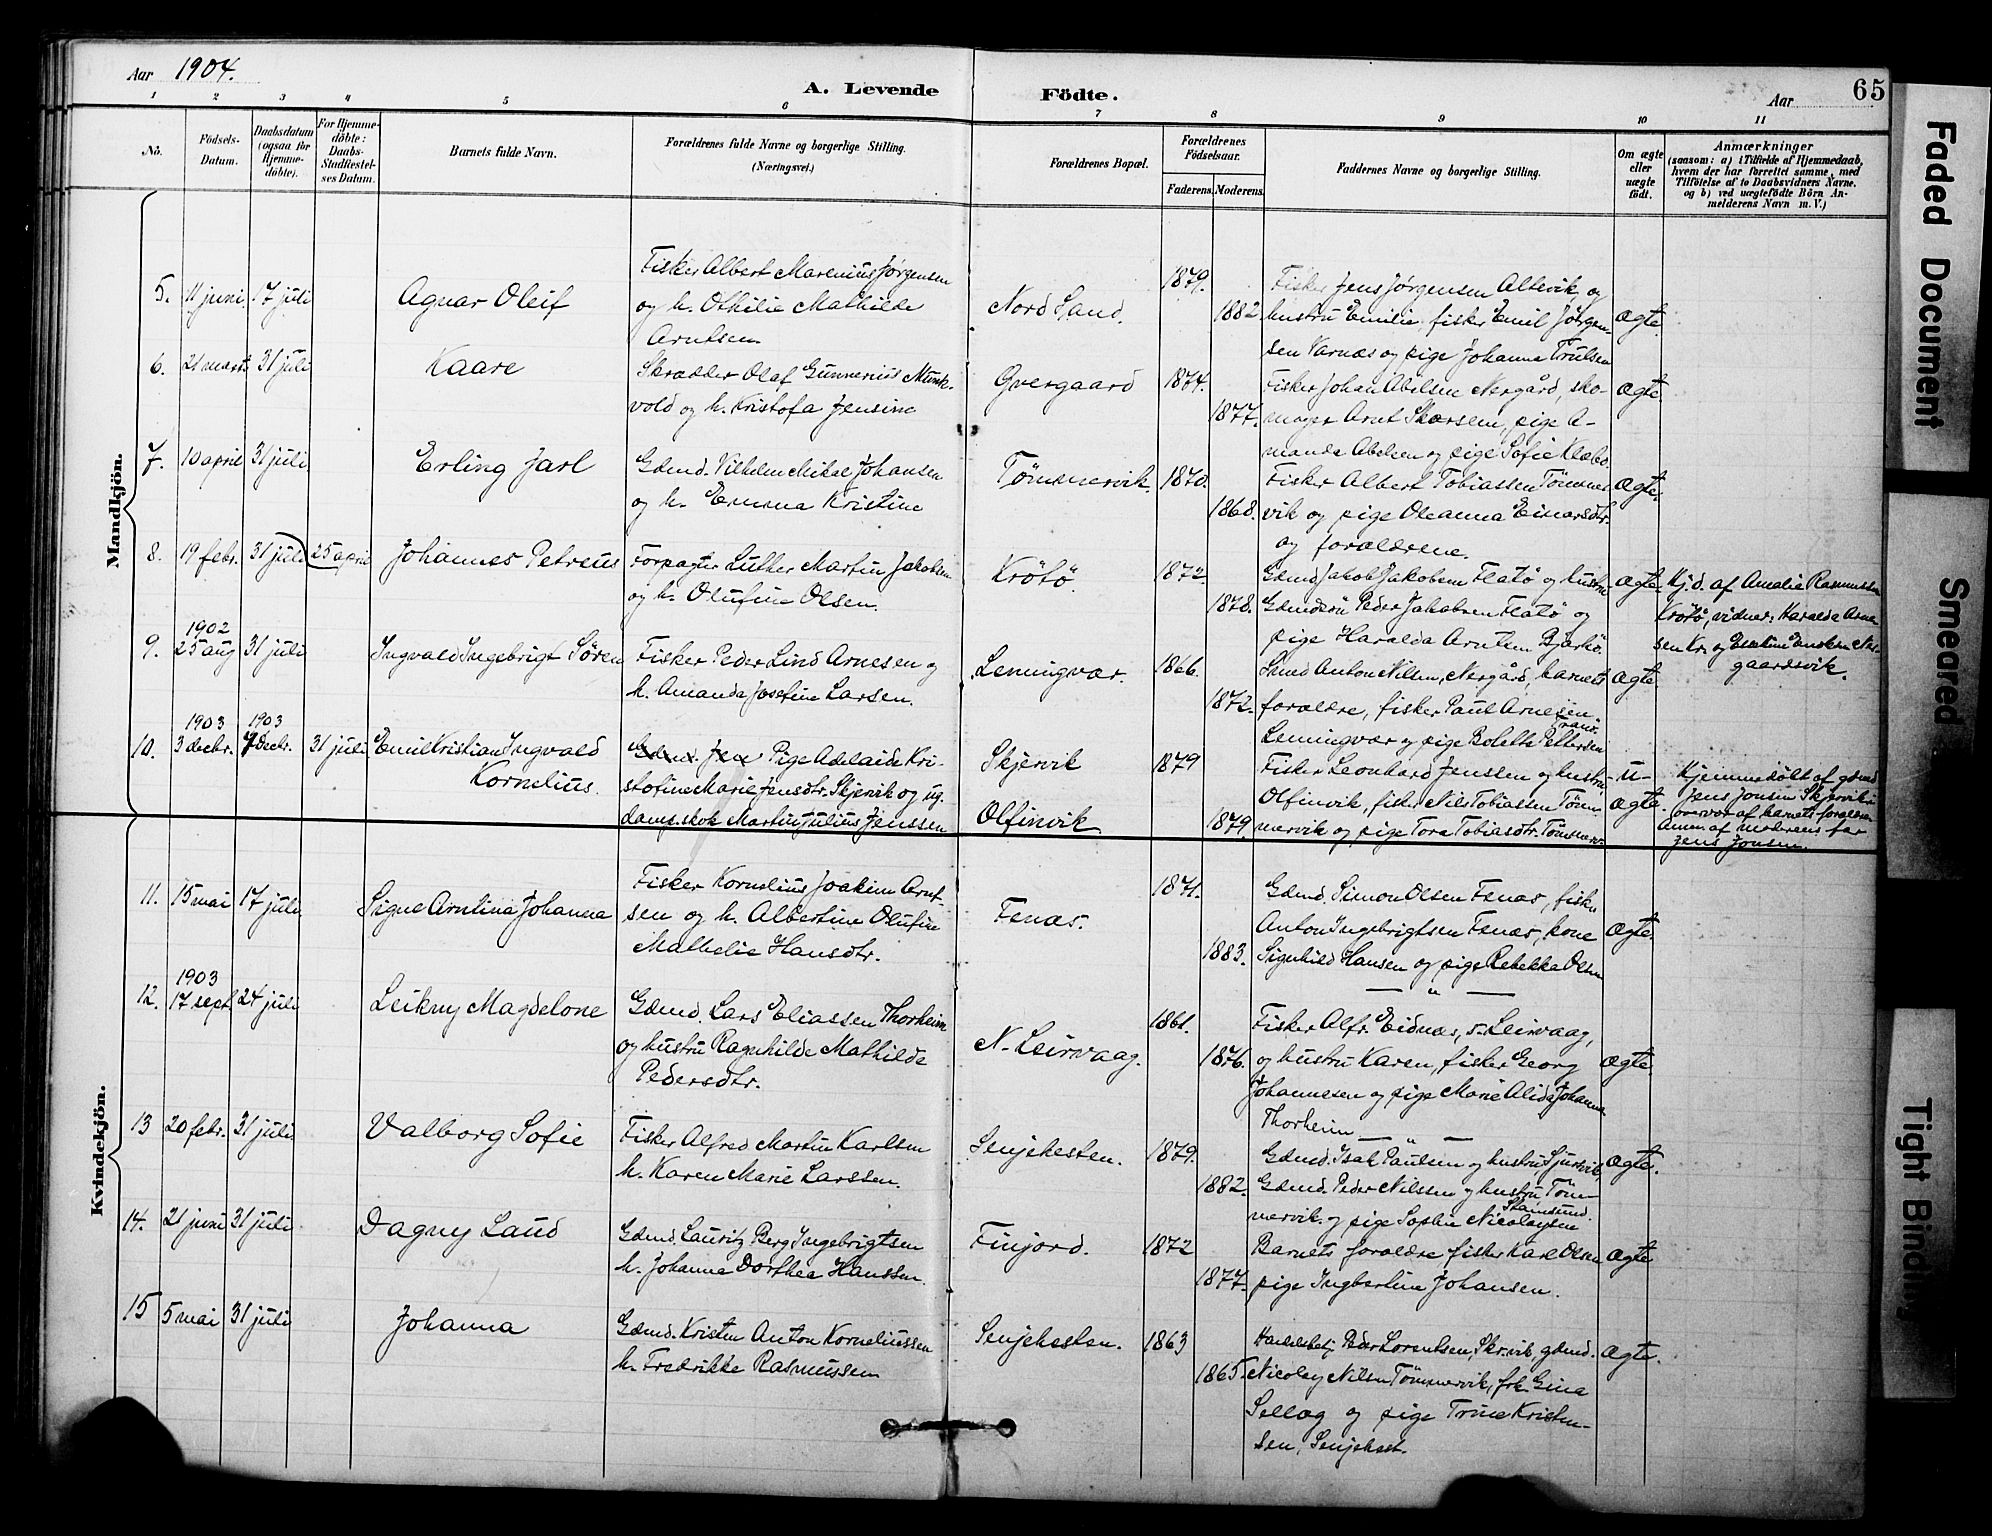 Aar 1904.
A. Levende Födte.
Aar
65
1 2 3 4 5 6 7 8 9 10 11
No.
Födsels-Datum.
Daabsdatum (ogsaa for Hjemmedöbte).
For Hjemmedöbte: Daabs-Stadfestelses Datum.
Barnets fulde Navn.
Forældrenes fulde Navne og borgerlige Stilling. (Næringsvei.)
Forældrenes Bopæl.
Forældrenes Födselsaar.
Faderens. Moderens.
Faddernes Navne og borgerlige Stilling.
Om ægte eller uægte födt.
Anmærkninger
(saasom: a) i Tilfælde af Hjemmedaab, hvem der har forrettet samme, med Tilföielse af to Daabsvidners Navne. og b) ved uægtefödte Börn Anmelderens Navn m. V.)
Mandkjön.
5. 11 juni 17 juli Agnar Oleif
Fisker Albert Marenius Jørgensen
og h. Othilie Mathilde
Arntsen
Nord Sand. 1879. 1882
Fisker Jens Jørgensen Altevik og
hustru Emilie, fisker Emil Jörgen
sen Varnæs og pige Johanna Trulsen
ægte.
6. 21 marts 31 juli Kaare
Skrædder Olaf Gunnerius Munk-
vold og h. Kristofa Jensine
Gvergaard 1874. 1877.
Fisker Johan Abelsen Nergård, sko-
mager Arnt Skarsem, pige A-
manda Abelsen og pige Sofie Klæbo.
ægte.
7. 10 april 31 juli Erling Jarl
Gdmd. Vilhelm Mikal Johansen
og h. Emma Kristine
Tømmervik. 1870. 1868.
Fisker Albert Tobiassen Tømmer
vik og pige Oleanna Einarsdtr.
og forældrene.
ægte.
8. 19 febr. 31 juli 25 april Johannes Petreus
Forpagter Luther Martin Jakobsen
og h. Olufine Olsen.
Krötö. 1872. 1878.
Gdmd Jakob Jakobsen Flatø og hustru
Gdmdsön Peder Jakobsen Flatø og
pige Haralda Arntsen Bjarkö.
ægte.
Hj.d. af Amalie Rasmussen
Krötö, vidner: Haralda Arne
sen Kr. og
gaardsvik.
9. 1902 25 aug 31 juli Ingvald Ingebrigt Sören
Fisker Peder Lind Arnesen og
h. Amanda Josefine Larsen.
Lemmingvær. 1866. 1872.
Smed Anton Nilsen, Nergård, barnets
forældre, fisker Paul Arnesen
Lemmingvær og pige Bolette Pettersen
Tranö.
ægte.
10. 1903 3 decbr. 1903 7 decbr. 31 juli Emil Kristian Ingvald
Kornelius.
Gdmd. Jen Pige Adelaide Kri-
stofine Marie Jensdtr. Skjervik og ug.
damp.skok Martin Julius Jenssen
Skjervik
Olfinvik 1879 1879
Fisker Leonhard Jenssen og hustru
Olfinvik, fisker Nils Tobiassen Töm-
mervik og pige Tora Tobiasdtr. Tömmerv.
u-
ægte.
Hjemmedöbt af gdmd
Jens Jonsen Skjervik i
overvær af barnets forældre
Anm. af moderens far
Jens Jonsen.
Kvindekjön.
11. 15 mai 17 juli Signe Arntina Johanna
Fisker Kornelius Joakim Arnt-
sen og h. Albertine Olufine
Mathelie Hansdtr.
Fenæs. 1871. 1883.
Gdmd. Simon Olsen Fenæs, fisker
Anton Ingebrigtsen Fenæs, kone
Signhild Hansen og pige Rebekka Olsen
— " —
ægte.
12. 1903 17 sept. 24 juli Leikny Magdelone
Gdmd. Lars Eliassen Thorheim
og hustru Ragnhilde Mathilde
Pedersdtr.
N. Leirvaag. 1861. 1876.
Fisker Alfr. Eidnæs, s. Leirvaag,
og hustru Karen, fisker Georg
Johannesen og pige Marie Alida Johanna
Thorheim — " —
ægte.
13 20 febr. 31 juli Valborg Sofie
Fisker Alfred Martin Karlsen
h. Karen Marie Larssen.
Senjehesten. 1879. 1882.
Gdmd. Isak Paulsen og hustru Sjursvik,
Gdmd. Peder Nilssen og hustru Töm-
mervik. og pige Sophie Nicolaysen
Stamsund.
ægte.
14. 21 juni 31 juli Dagny Laud
Gdmd. Lauritz Berg Ingebrigtsen
h. Johanna Dorthea Hanssen.
Finjord. 1872 1877.
Barnets forældre fisker Karl Olsen
pige Ingbertine Johansen.
ægte
15 5 mai 31 juli Johanna
Gdmd. Kristen Anton Korneliussen
h. Fredrikke Rasmussen
Senjehesten. 1863 1865.
Handelsbetj. Peder Lorentsen, Skrvik, gdmd.
Nicolay Nilsen Tömmervik, frk Gina
Sellæg og pige Trine Kristen-
sen, Senjehest.
ægte.
Faded Document
Smeared
Tight Binding